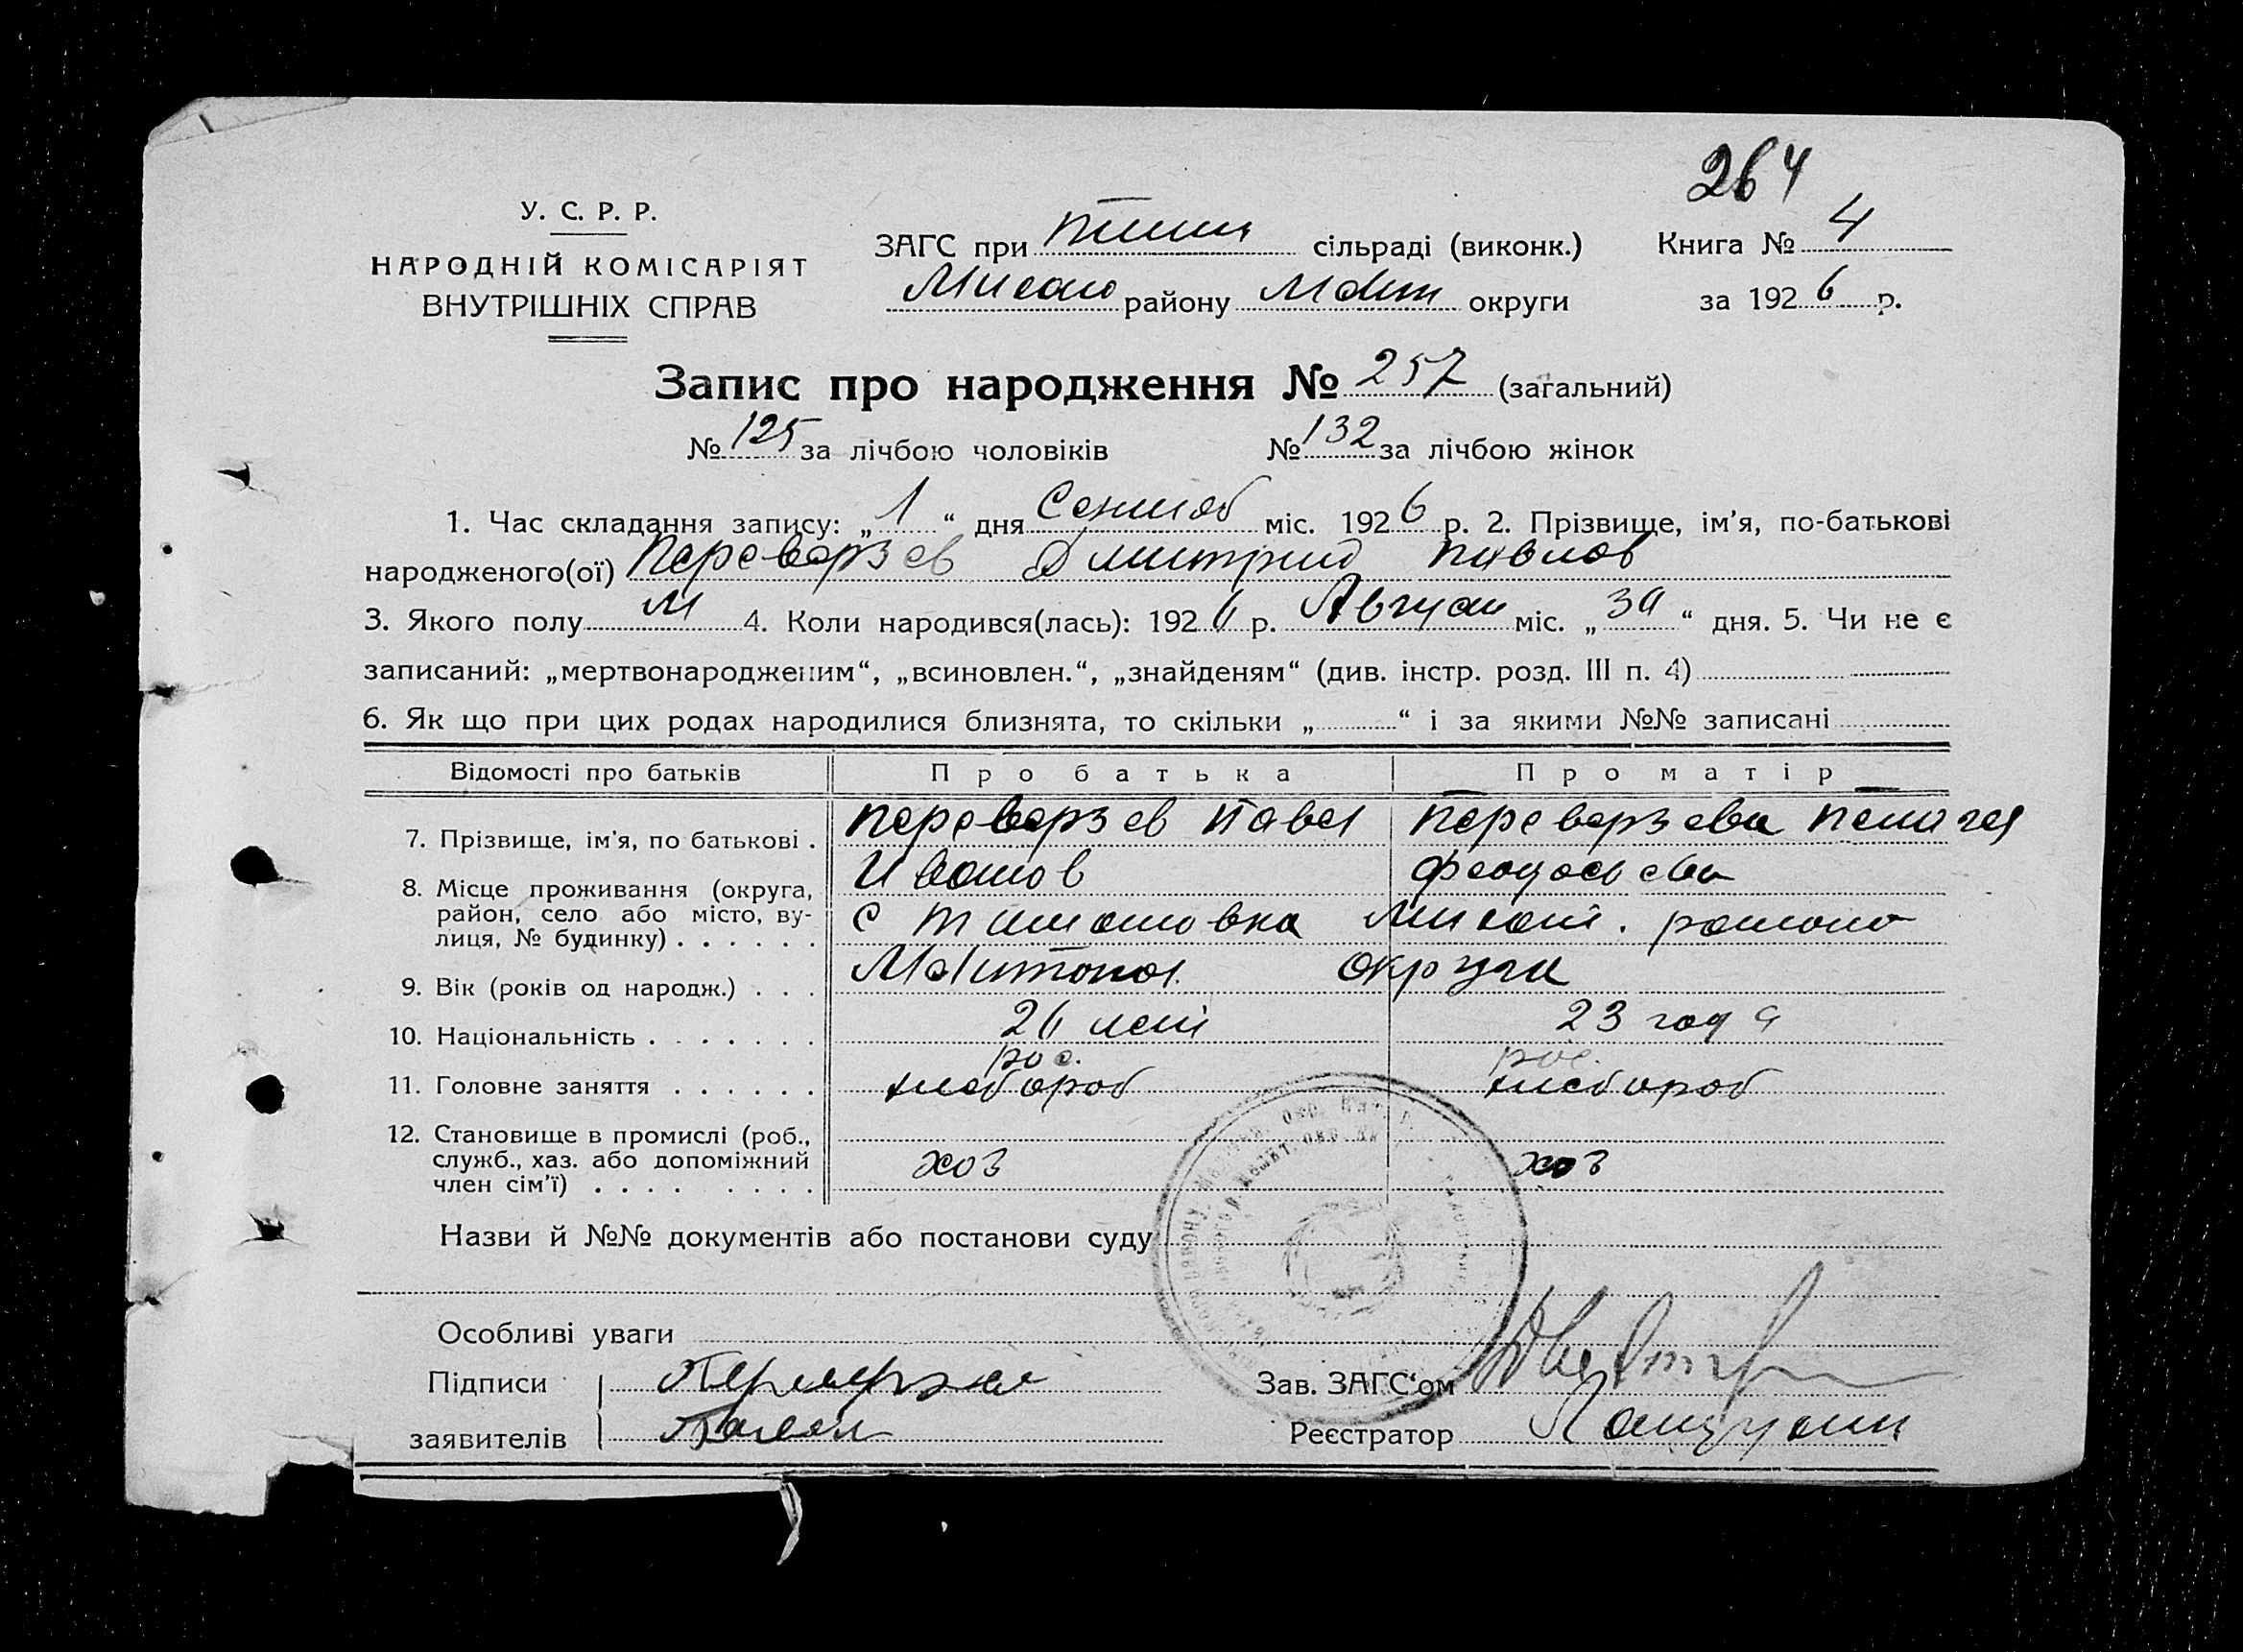 264
У. С. Р. Р.
НАРОДНІЙ КОМІСАРІЯТ
ВНУТРІШНІХ СПРАВ
ЗАГС при Тимош сільраді (виконк.) Книга № 4
району Меліт округи за 1926 р.
Запис про народження № 257 (загальний)
№ 125 за лічбою чоловіків № 132 за лічбою жінок
1. Час складання запису: „1“ дня Сентяб міс. 1926 р. 2. Прізвище, ім’я, по-батькові
народженого(ої) Переверзев Дмитрий Павлов
3. Якого полу М 4. Коли народився(лась): 1926 р. Август міс. „30“ дня. 5. Чи не є
записаний: „мертвонародженим“, „всиновлен.“, „знайденям“ (див. інстр. розд. III п. 4)
6. Як що при цих родах народилися близнята, то скільки „ “ і за якими №№ записані
Відомості про батьків Про батька Про матір
7. Прізвище, ім’я, по батькові . Переверзев Павел Переверзева Пелагея
Иванов Феодосьева
8. Місце проживання (округа,
район, село або місто, ву-
лиця, № будинку) . . . . . . с Тимошовка района
Мелитопол. округи
9. Вік (років од народж.) . . . 26 лет 23 года
10. Національність . . . . . . . рос. рос.
11. Головне заняття . . . . . . хлебороб хлебороб
12. Становище в промислі (роб.,
служб., хаз. або допоміжний
член сім’ї) . . . . . . . . хоз хоз
Назви й №№ документів або постанови суду
Особливі уваги
Підписи Переверзев
заявителів Павел
Зав. ЗАГС‘ом
Реєстратор